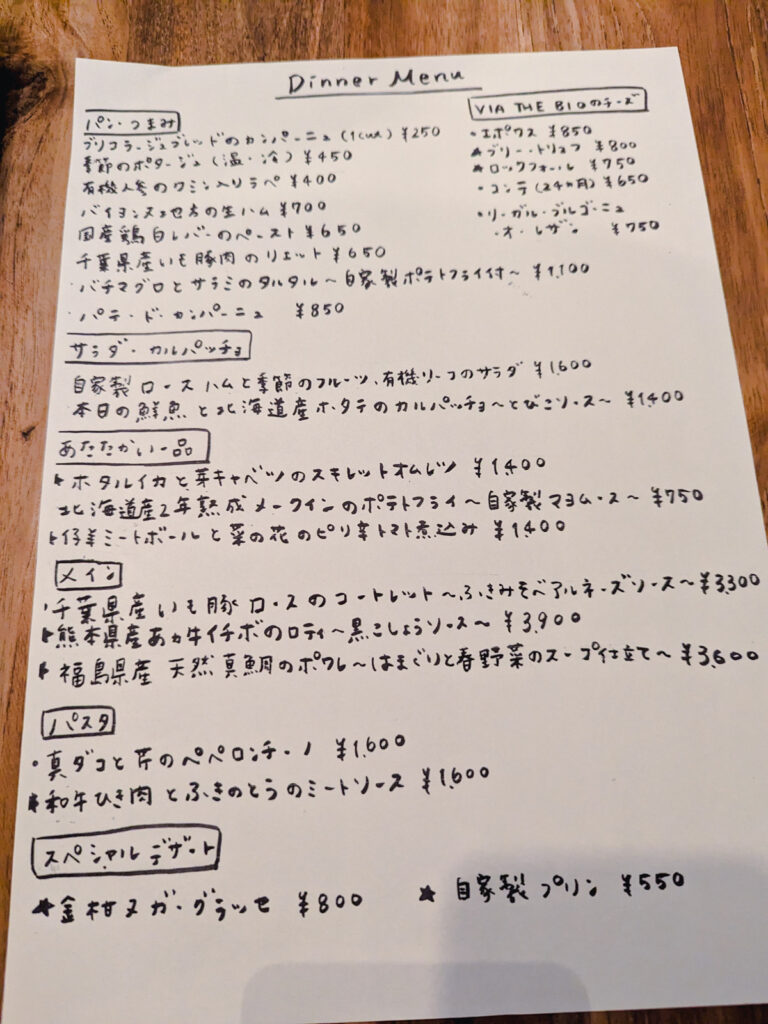 Dinner Menu
パン・つまみ
ブリコラージュブレッドのカンパーニュ(1cut) ¥250
季節のポタージュ(温・冷) ¥450
有機人参のクミン入りラペ ¥400
バイヨンヌ地方の生ハム ¥700
国産鶏白レバーのペースト ¥650
千葉県産いも豚肉のリエット ¥650
・バチマグロとサラミのタルタル〜自家製ポテトフライ付〜 ¥1,100
・パテ・ド・カンパーニュ ¥850
VIA THE BIOのチーズ
・エポワス ¥850
★ブリー・トリュフ ¥800
★ロックフォール ¥750
・コンテ(24ヵ月) ¥650
・リーガル・ブルゴーニュ
・オ・レザン ¥750
サラダ・カルパッチョ
自家製ロースハムと季節のフルーツ、有機リーフのサラダ ¥1,600
本日の鮮魚と北海道産ホタテのカルパッチョ〜とびこソース〜 ¥1,400
あたたかい一品
ホタルイカと芽キャベツのスキレットオムレツ ¥1,400
北海道産2年熟成メークインのポテトフライ〜自家製マヨムース〜 ¥750
仔羊ミートボールと菜の花のピリ辛トマト煮込み ¥1,400
メイン
・千葉県産いも豚ロースのコートレット〜ふきみそベアルネーズソース〜 ¥3,300
熊本県産あか牛イチボのロティ〜黒こしょうソース〜 ¥3,900
福島県産 天然真鯛のポワレ〜はまぐりと春野菜のスープ仕立て〜 ¥3,600
パスタ
・真ダコと芹のペペロンチーノ ¥1,600
★和牛ひき肉とふきのとうのミートソース ¥1,600
スペシャルデザート
★金柑ヌガーグラッセ ¥800
★ 自家製プリン ¥550